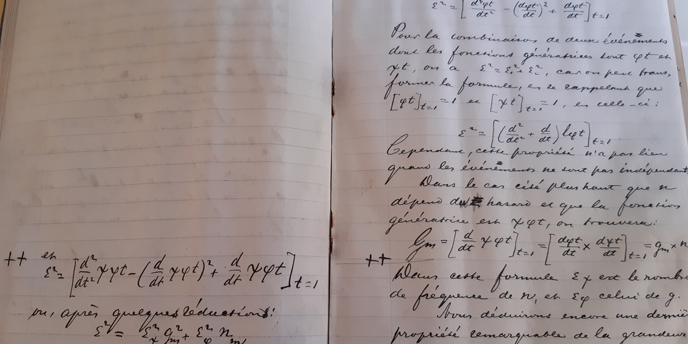 ++ et
ε² = [d²/dt² χφt - (d/dt χφt)² + d/dt χφt]t=1
ou, après quelques réductions:
ε² = ε²χ g²m + ε²φ nm
ε² = [d²φt/dt² - (dφt/dt)² + dφt/dt]t=1
Pour la combinaison de deux événements
dont les fonctions génératrices sont φt et
χt, on a ε² = ε₁² + ε₂², car on peut trans,
former la formule, en se rappelant que
[φt]t=1 = 1 et [χt]t=1 = 1, en celle-ci:
ε² = [(d²/dt² + d/dt) lφt]t=1
Cependant, cette propriété n'a pas lieu
quand les événements ne sont pas indépendant
Dans le cas cité plus haut que n
dépend du hasard et que la fonction
génératrice est χφt, on trouvera:
Gm = [d/dt χφt]t=1 = [dφt/dt × dχt/dt]t=1 = gm × n
++
Dans cette formule εχ est le nombre
de fréquence de n, et εφ celui de g.
Nous déduirons encore une dernière
propriété remarquable de la grandeur